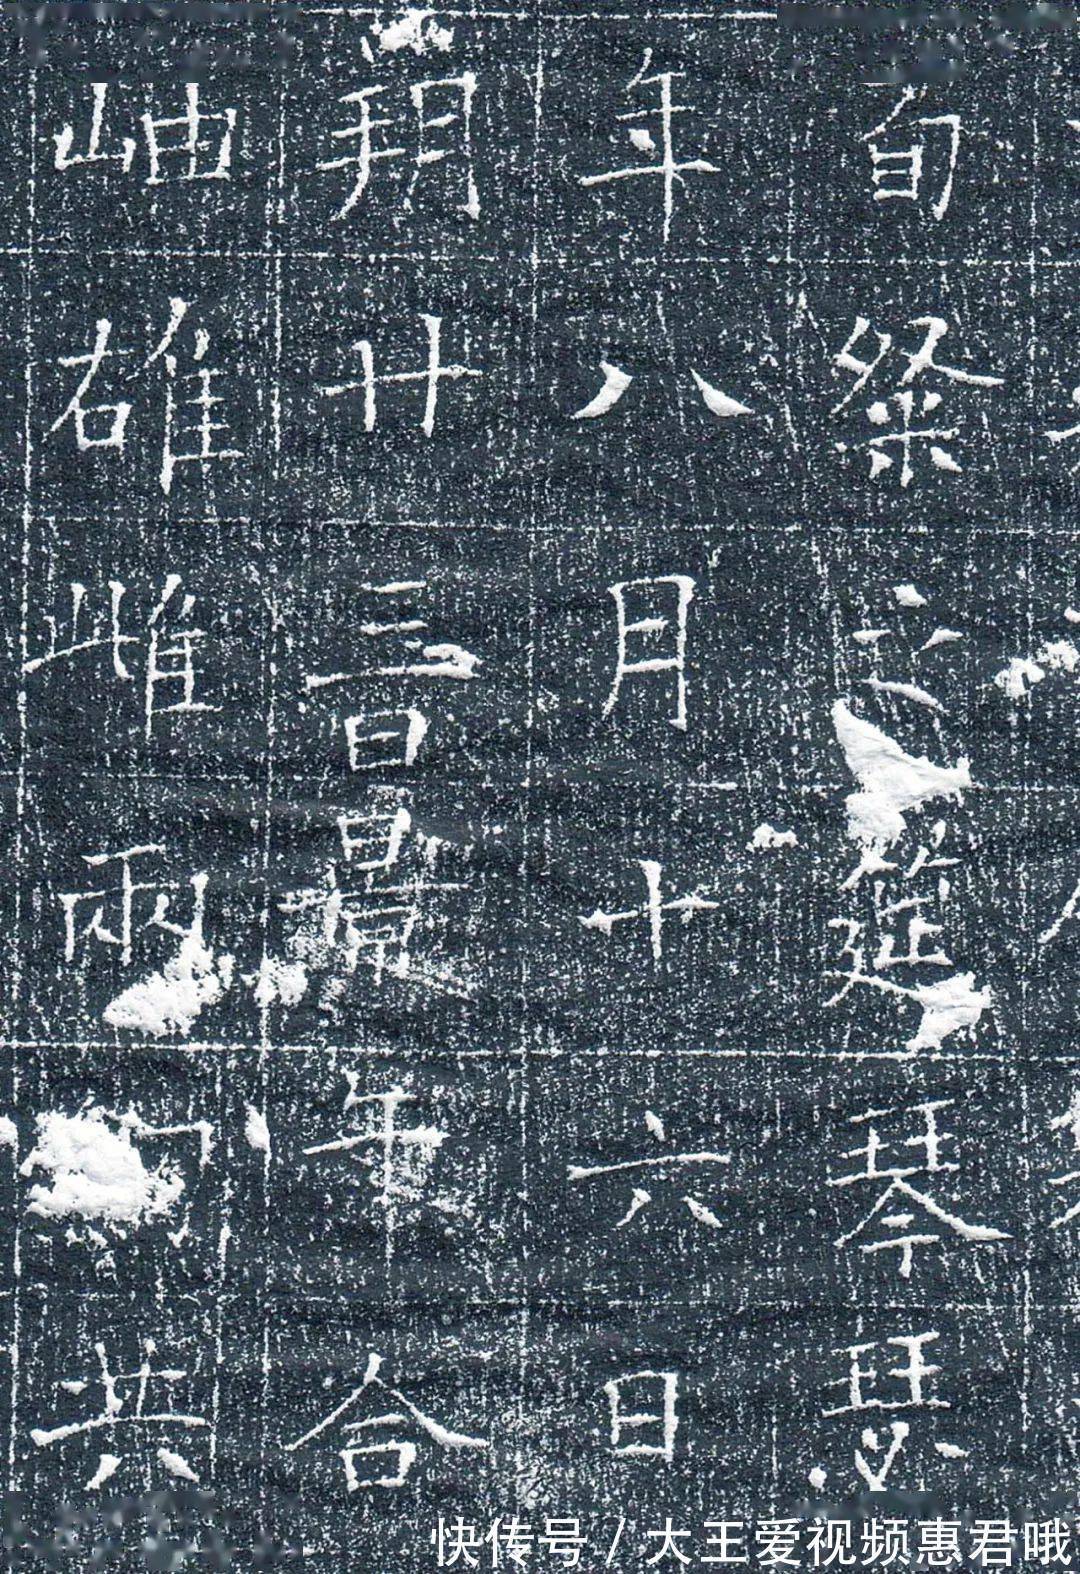 旬粲之筵琴瑟
年八月十六日
朔廿三日景午合
岫雄雌兩共
快传号 / 大王爱视频惠君哦